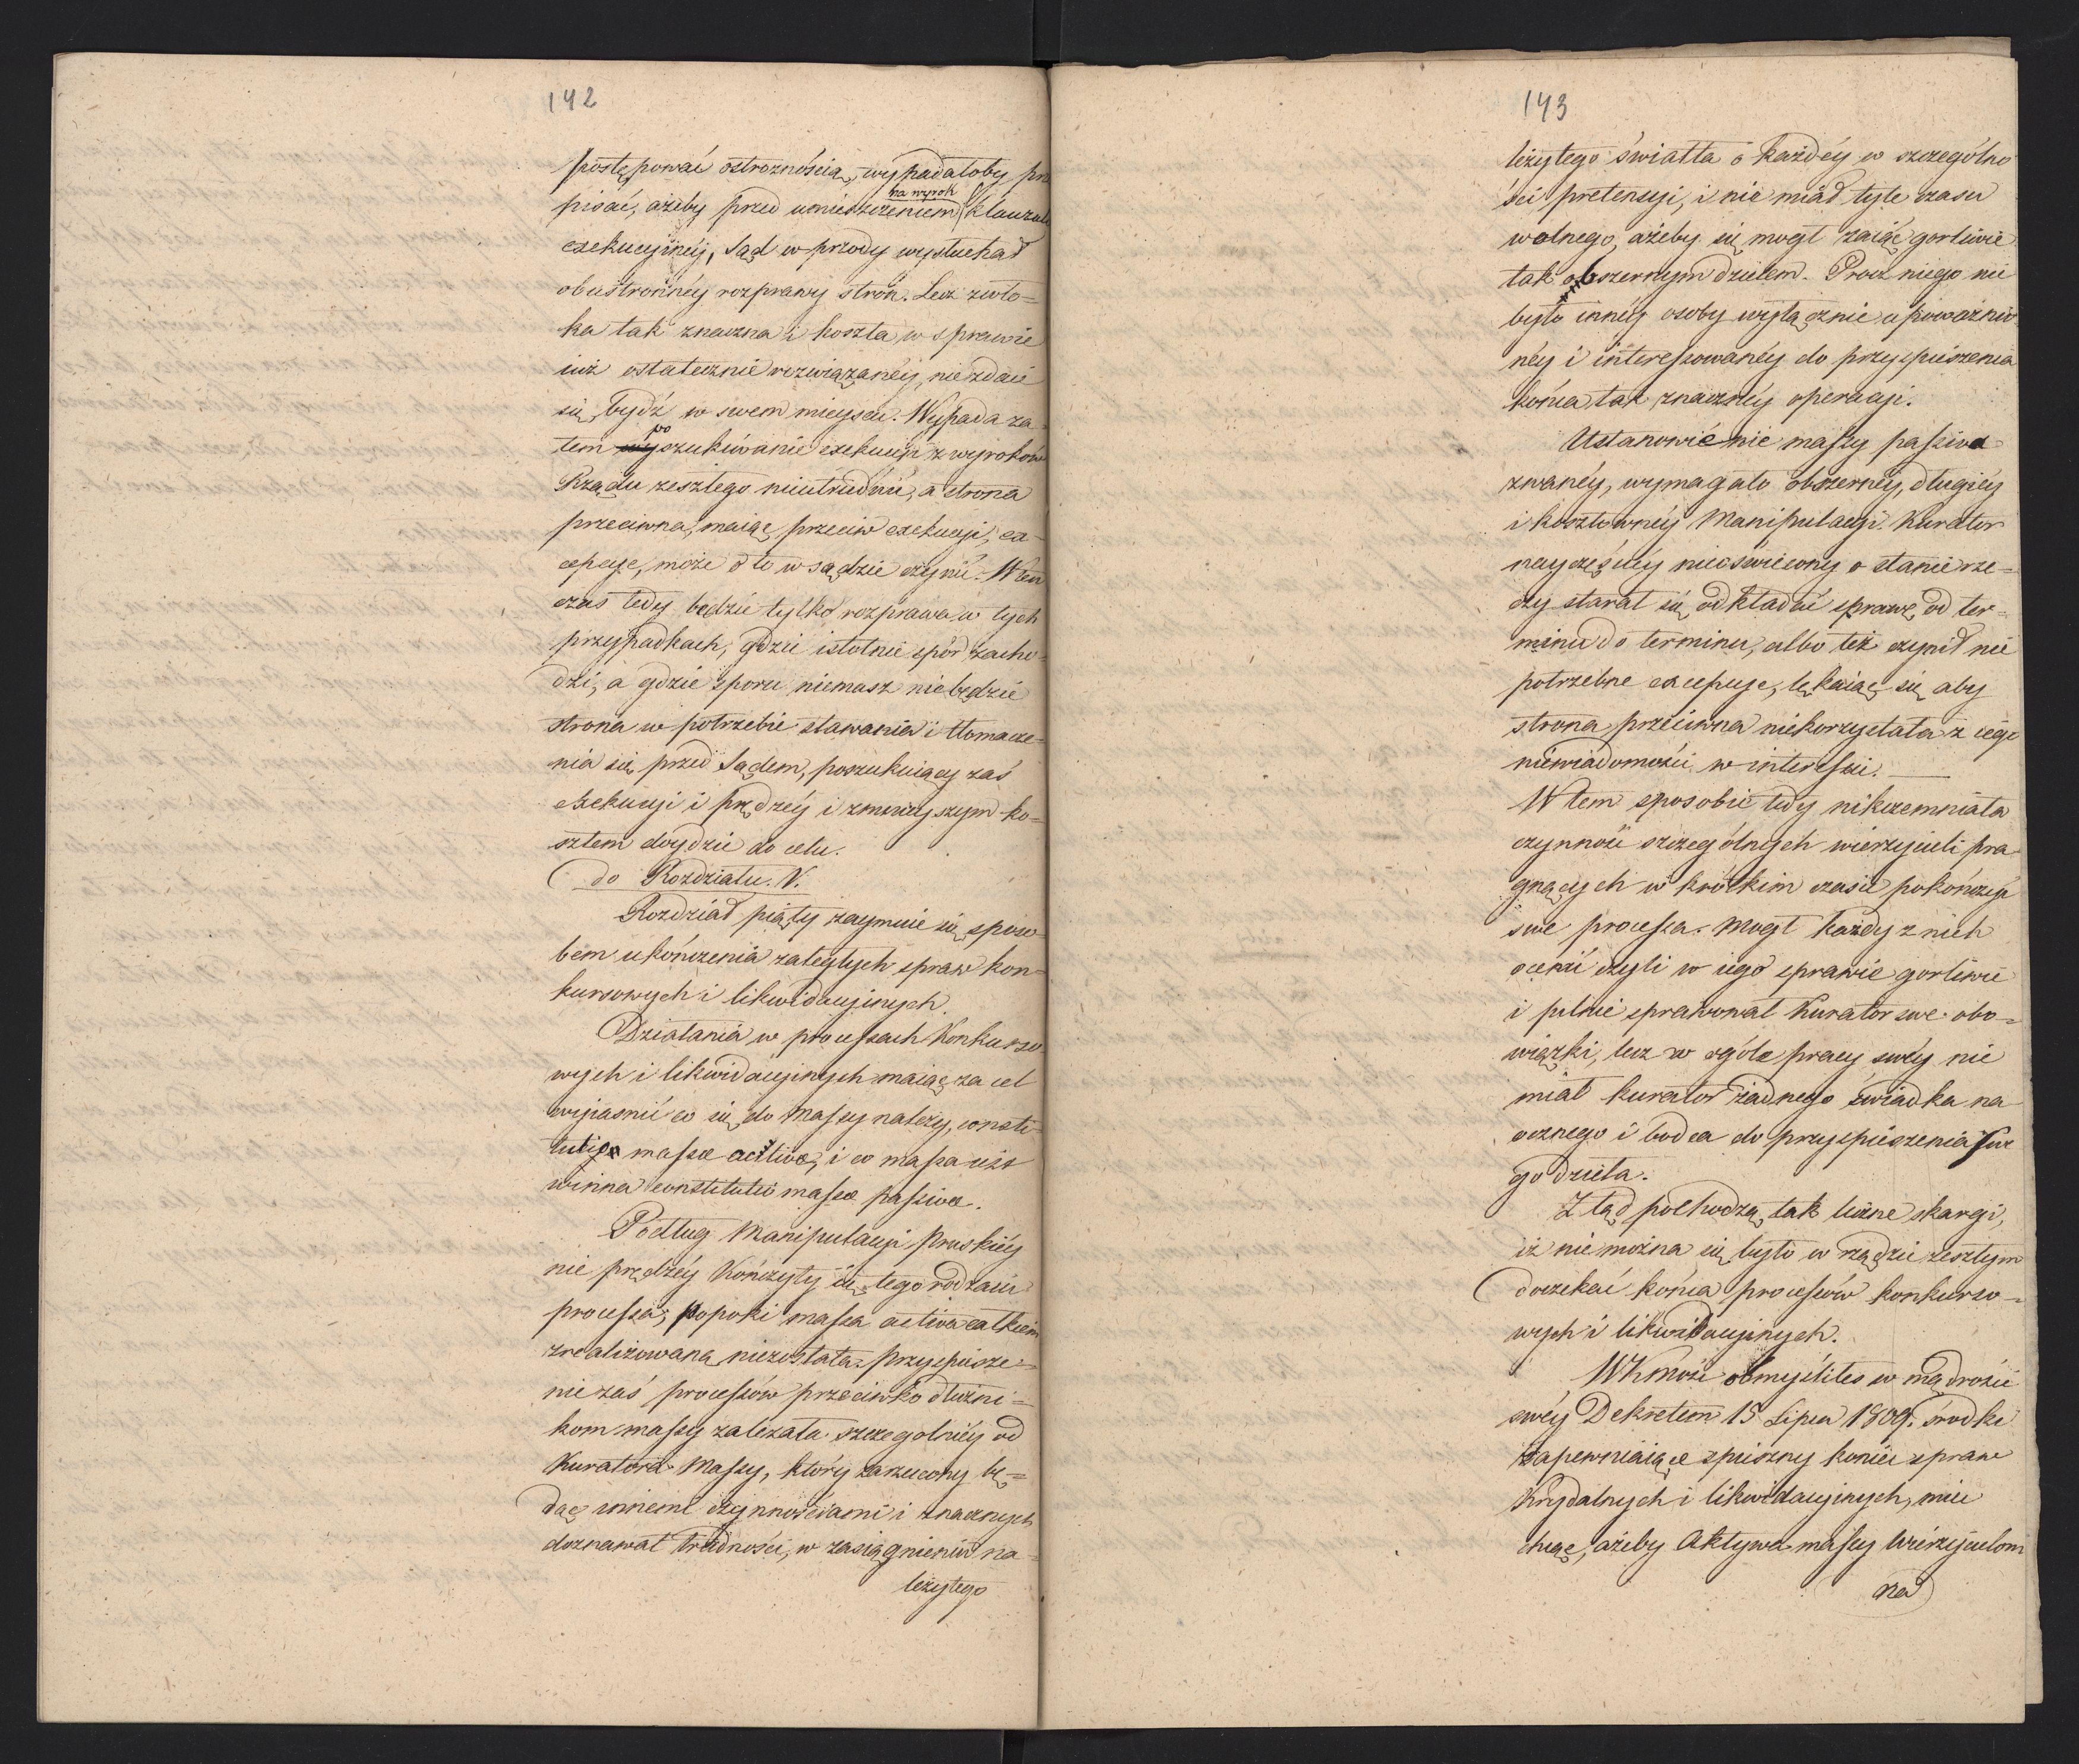 142
postępować ostrożnością, wypadałoby prze
pisać, ażeby przed umieszczeniem na wyrok klauzuli
exekucyinéy, Sąd w przody wysłuchał
obustronnéy rozprawy stron. Lecz zwło=
ka tak znaczna i koszta, w sprawie
iuż ostatecznie rozwiązanéy, nie zdaie
się bydź w swem mieyscu. Wypada za
tem poszukiwanie exekucyi z wyroków
Rządu zeszłego nieutrudnić, a strona
przeciwna, maiąc przeciw exekucyi, ex-
cepcye, może o to w sądzie czynić. W ten
czas tedy będzie tylko rozprawa w tych
przypadkach, gdzie istotnie spór zacho-
dzi, a gdzie sporu niemasz niebędzie
strona w potrzebie stawania i tłomacze=
nia się przed Sądem, poszukuiący zaś
exekucyi i prędzéy i zmnieyszym ko=
sztem doydzie do celu.
do Rozdziału. V.
Rozdział piąty zaymuie się sposo-
bem ukończenia zaległych spraw kon=
kursowych i likwidacyinych.
Działania w processach Konkurso
wych i likwidacyinych maiąc za cel
wyiasnić co się do Massy należy, consti
tutio massæ activæ, i co massa uiśc
winna constitutio massæ passivæ.
Podług Manipulacyi Pruskiéy
nie prędzéy kończyły się tego rodzaiu
processa, popoki massa activa całkiem
zrealizowaną niezostała. przyspiesze=
nie zaś processów przeciwko dłużni=
kom massy zależało szczególniéy od
Kuratora Massy, który zarzucony bę=
dąc innemi czynnościami i znacznych
doznawał trudności, w zasiągnieniu na-
leżytego
143
leżytego światła o każdéy w szczególno
ści pretensyi, i nie miał tyle czasu
wolnego, ażeby się mógł zaiąć gorliwie
tak obszernym dziełem. Procz niego nie
było innéy osoby wyłącznie upoważnio
néy i interessowanéy do przyspieszenia
końca tak znacznéy operacyi.
Ustanowienie massy passiva
zwanéy, wymagało obszernéy, długiéy
i kosztownéy Manipulacyi. Kurator
nayczęściéy nieoświecony o stanie rze=
czy starał się odkładać sprawę od ter=
minu do terminu, albo też czynił nie
potrzebne excepcye, lękaiąc się aby
strona przeciwna niekorzystała z iego
niewiadomości w interessie.
W tem sposobie tedy nikczemniała
czynność szczególnych wierzycieli pra-
gnących w krótkim czasie pokończyć
swe processa. Mogł każdy z nich
ocenić czyli w iego sprawie gorliwie
i pilnie sprawował Kurator swe obo=
wiązki, lecz w ogóle pracy swéy nie
miał kurator żadnego świadka na-
ocznego i bodca do przyspieszenia swe
go dzieła.
Ztąd pochodzą tak liczne skargi,
iż nie można się było w rządzie zeszłym
doczekać końca processów konkurso=
wych i likwidacyinych.
WKmość obmyśliłes w mądrości
swéy Dekretem 15 Lipca 1809. srodki
zapewniaiące spieszny koniec spraw
Krydalnych i likwidacyinych, mieć
chcąc, ażeby Aktywa massy wierzycielom
na